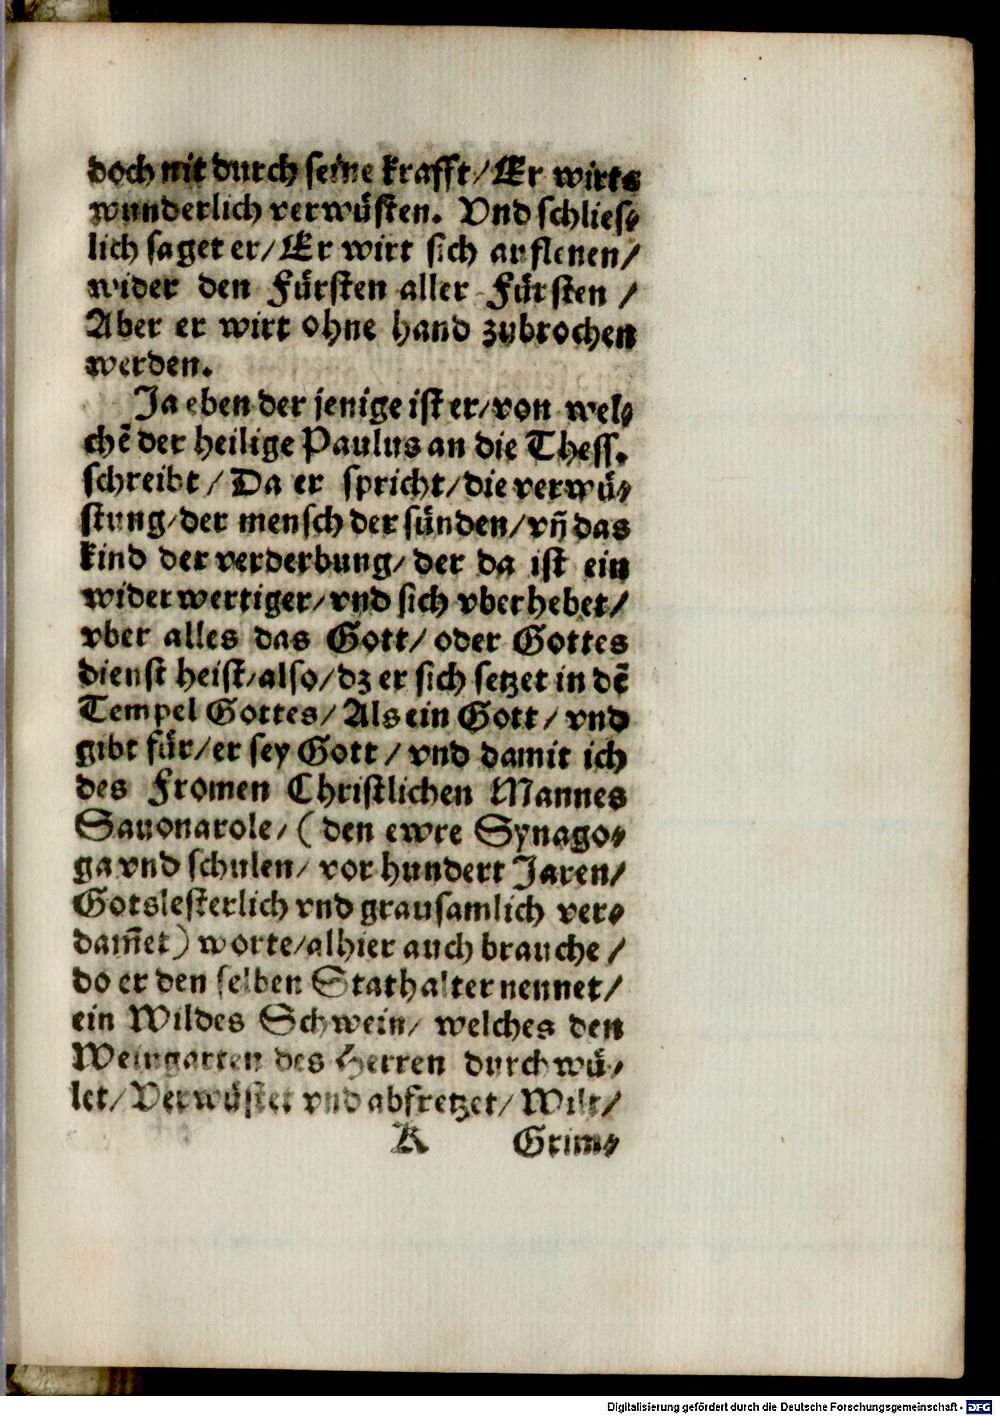 doch nit durch seine krafft/Er wirts
wunderlich verwüsten. Vnd schlies⸗
lich saget er/Er wirt sich auflenen/
wider den Fürsten aller Fürsten /
Aber er wirt ohne hand zubrochen
werden.
Ja eben der jenige ist er/von wel⸗
chē der heilige Paulus an die Thess.
schreibt/Da er spricht/die verwü⸗
stung/der mensch der sünden/vn̄ das
kind der verderbung/der da ist ein
widerwertiger/vnd sich vberhebet/
vber alles das Gott/oder Gottes
dienst heist/also/dz er sich setzet in dē
Tempel Gottes/Als ein Gott/vnd
gibt für/er sey Gott/vnd damit ich
des Fromen Christlichen Mannes
Sauonarole/(den ewre Synago⸗
ga vnd schulen/vor hundert Jaren/
Gotslesterlich vnd grausamlich ver⸗
dam̄et) worte/alhier auch brauche/
do er den selben Stathalter nennet/
ein Wildes Schwein/welches den
Weingarten des Herren durchwü⸗
let/Verwüstet vnd abfretzet/Wilt/
K Grim⸗
Digitalisierung gefördert durch die Deutsche Forschungsgemeinschaft - DFG